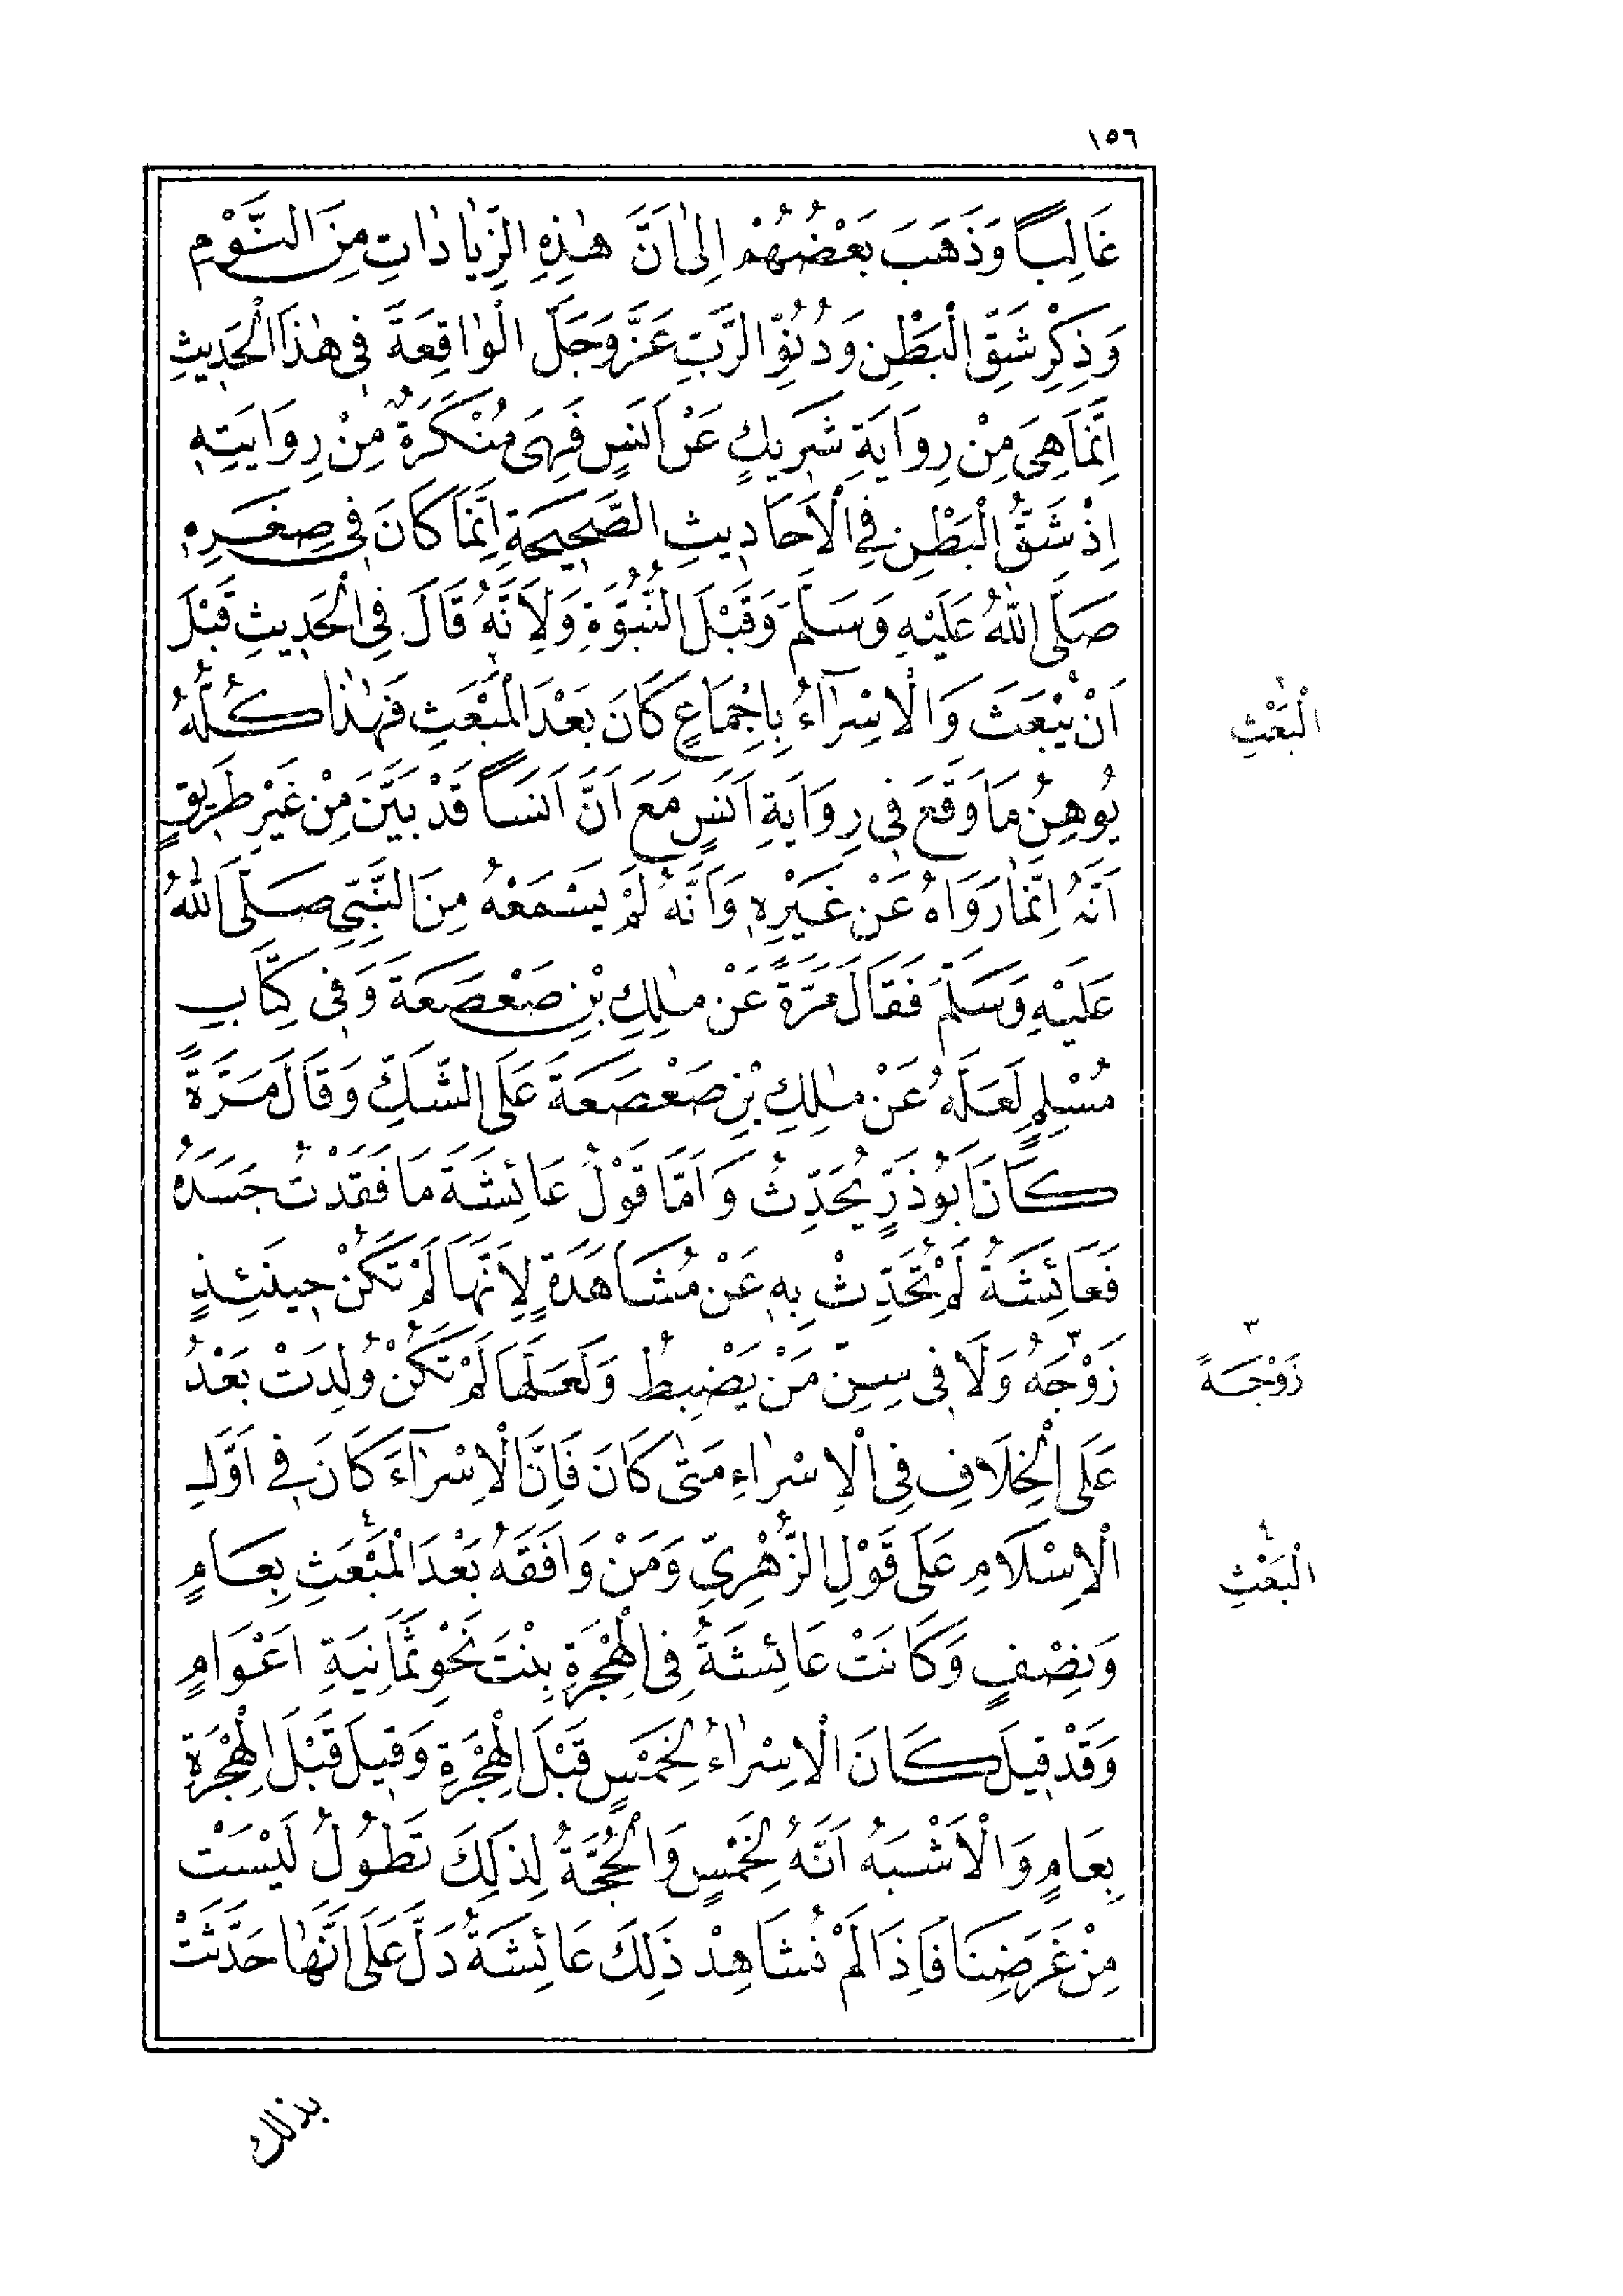 ١٥٦
غَالِبًا وَذَهَبَ بَعْضُهُمْ اِلٰى اَنَّ هٰذِهِ الزِّيَادَاتِ مِنَ النَّوْمِ
وَذِكْرِ شَقِّ الْبَطْنِ وَدُنُوِّ الرَّبِّ عَزَّ وَجَلَّ الْوَاقِعَةَ فِى هٰذَا الْحَدِيثِ
اِنَّمَا هِىَ مِنْ رِوَايَةِ شَرِيكٍ عَنْ اَنَسٍ فَهِىَ مُنْكَرَةٌ مِنْ رِوَايَتِهِ
اِذْ شَقُّ الْبَطْنِ فِى الْاَحَادِيثِ الصَّحِيحَةِ اِنَّمَا كَانَ فِى صِغَرِهِ
صَلَّى اللهُ عَلَيْهِ وَسَلَّمَ وَقَبْلَ النُّبُوَّةِ وَلِاَنَّهُ قَالَ فِى الْحَدِيثِ قَبْلَ
اَنْ يُبْعَثَ وَالْاِسْرَآءُ بِاِجْمَاعٍ كَانَ بَعْدَ الْمَبْعَثِ فَهٰذَا كُلُّهُ
يُوهِنُ مَا وَقَعَ فِى رِوَايَةِ اَنَسٍ مَعَ اَنَّ اَنَسًا قَدْ بَيَّنَ مِنْ غَيْرِ طَرِيقٍ
اَنَّهُ اِنَّمَا رَوَاهُ عَنْ غَيْرِهِ وَاَنَّهُ لَمْ يَسْمَعْهُ مِنَ النَّبِىِّ صَلَّى اللهُ
عَلَيْهِ وَسَلَّمَ فَقَالَ مَرَّةً عَنْ مٰلِكِ بْنِ صَعْصَعَةَ وَفِى كِتَابِ
مُسْلِمٍ لَعَلَّهُ عَنْ مٰلِكِ بْنِ صَعْصَعَةَ عَلَى الشَّكِّ وَقَالَ مَرَّةً
كَانَ اَبُو ذَرٍّ يُحَدِّثُ وَاَمَّا قَوْلُ عَائِشَةَ مَا فَقَدْتُ جَسَدَهُ
فَعَائِشَةُ لَمْ تُحَدِّثْ بِهِ عَنْ مُشَاهَدَةٍ لِاَنَّهَا لَمْ تَكُنْ حِينَئِذٍ
زَوْجَهُ٣ وَلَا فِى سِنِّ مَنْ يَضْبِطُ وَلَعَلَّهَا لَمْ تَكُنْ وُلِدَتْ بَعْدُ
عَلَى الْخِلَافِ فِى الْاِسْرَاءِ مَتٰى كَانَ فَاِنَّ الْاِسْرَآءَ كَانَ فِى اَوَّلِ
الْاِسْلَامِ عَلَى قَوْلِ الزُّهْرِىِّ وَمَنْ وَافَقَهُ بَعْدَ الْمَبْعَثِ٤ بِعَامٍ
وَنِصْفٍ وَكَانَتْ عَائِشَةُ فِى الْهِجْرَةِ بِنْتَ نَحْوِ ثَمَانِيَةِ اَعْوَامٍ
وَقَدْ قِيلَ كَانَ الْاِسْرَاءُ لِخَمْسٍ قَبْلَ الْهِجْرَةِ وَقِيلَ قَبْلَ الْهِجْرَةِ
بِعَامٍ وَالْاَشْبَهُ اَنَّهُ لِخَمْسٍ وَالْحُجَّةُ لِذٰلِكَ تَطُولُ لَيْسَتْ
مِنْ غَرَضِنَا فَاِذَا لَمْ تُشَاهِدْ ذٰلِكَ عَائِشَةُ دَلَّ عَلَى اَنَّهَا حَدَّثَتْ
الْبَعْثِ
٣
زَوْجَةً
٤
الْبَعْثِ
بذلك